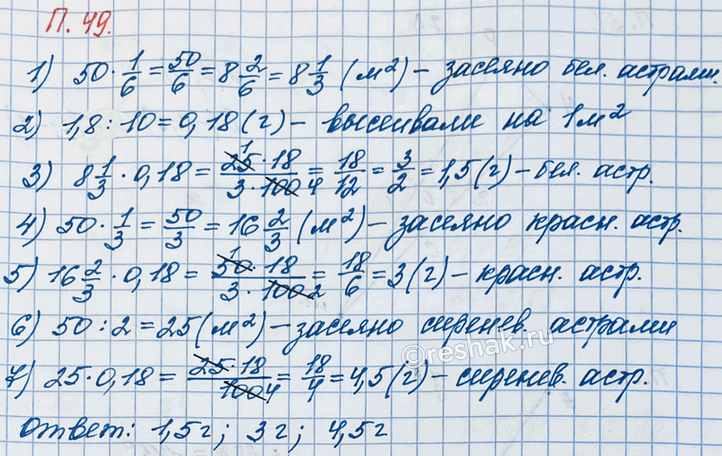 П. 49.
1) 50 · 1/6 = 50/6 = 8 2/6 = 8 1/3 (м²) – засеяно бел. астрами.
2) 1,8 : 10 = 0,18 (г) – высеивали на 1 м²
3) 8 1/3 · 0,18 = 25 1 · 18 / 3 · 100 4 = 18/12 = 3/2 = 1,5 (г) – бел. астр.
4) 50 · 1/3 = 50/3 = 16 2/3 (м²) – засеяно красн. астр.
5) 16 2/3 · 0,18 = 50 1 · 18 / 3 · 100 2 = 18/6 = 3 (г) – красн. астр.
6) 50 : 2 = 25 (м²) – засеяно сиренев. астрами
©reshak.ru
7) 25 · 0,18 = 25 · 18 / 100 4 = 18/4 = 4,5 (г) – сиренев. астр.
Ответ: 1,5 г; 3 г; 4,5 г